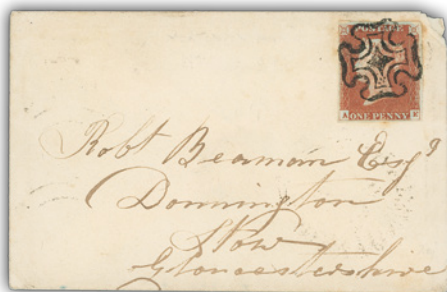 POSTAGE
ONE PENNY
Robt Beaman Esqr
Donnington
Stow
Gloucestershire